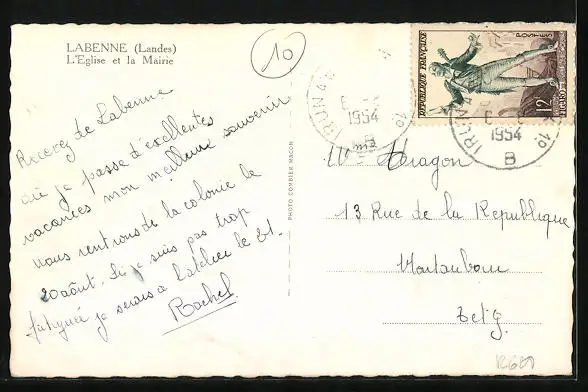 LABENNE (Landes)
L'Eglise et la Mairie
10
Recevez de Labenne
où je passe d'excellentes
vacances mon meilleur souvenir
nous rentrons de la colonie le
20 août. Si je suis pas trop
fatiguée je serais à l'atelier le 21.
Rachel
PHOTO COMBIER MACON
REPUBLIQUE FRANÇAISE
POSTES
12
1954
B
IRUN
1954
B
Mme Aragon
13 Rue de la Republique
Montauban
Tet G.